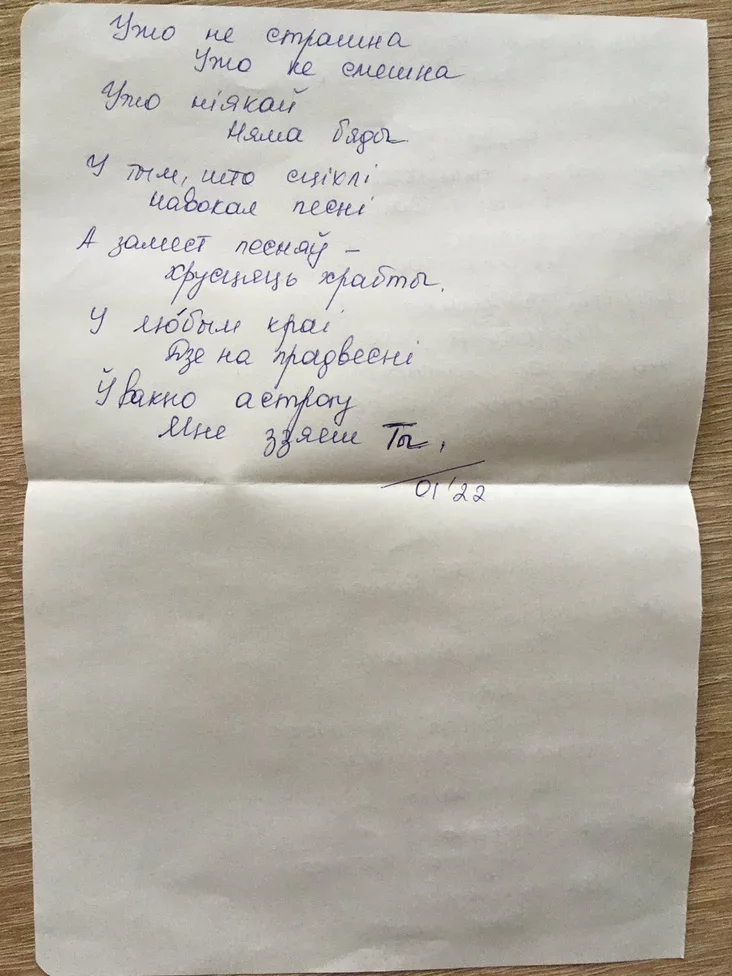 Ужо не страшна
Ужо не смешна
Ужо ніякай
Няма бяды
У тым, што сціхлі
Навокал песні
А замест песняў –
Хрусцяць храбты.
У любым краі
Дзе на прадвесні
Ў вакно астрогу
Мне ззяеш Ты.
01'22